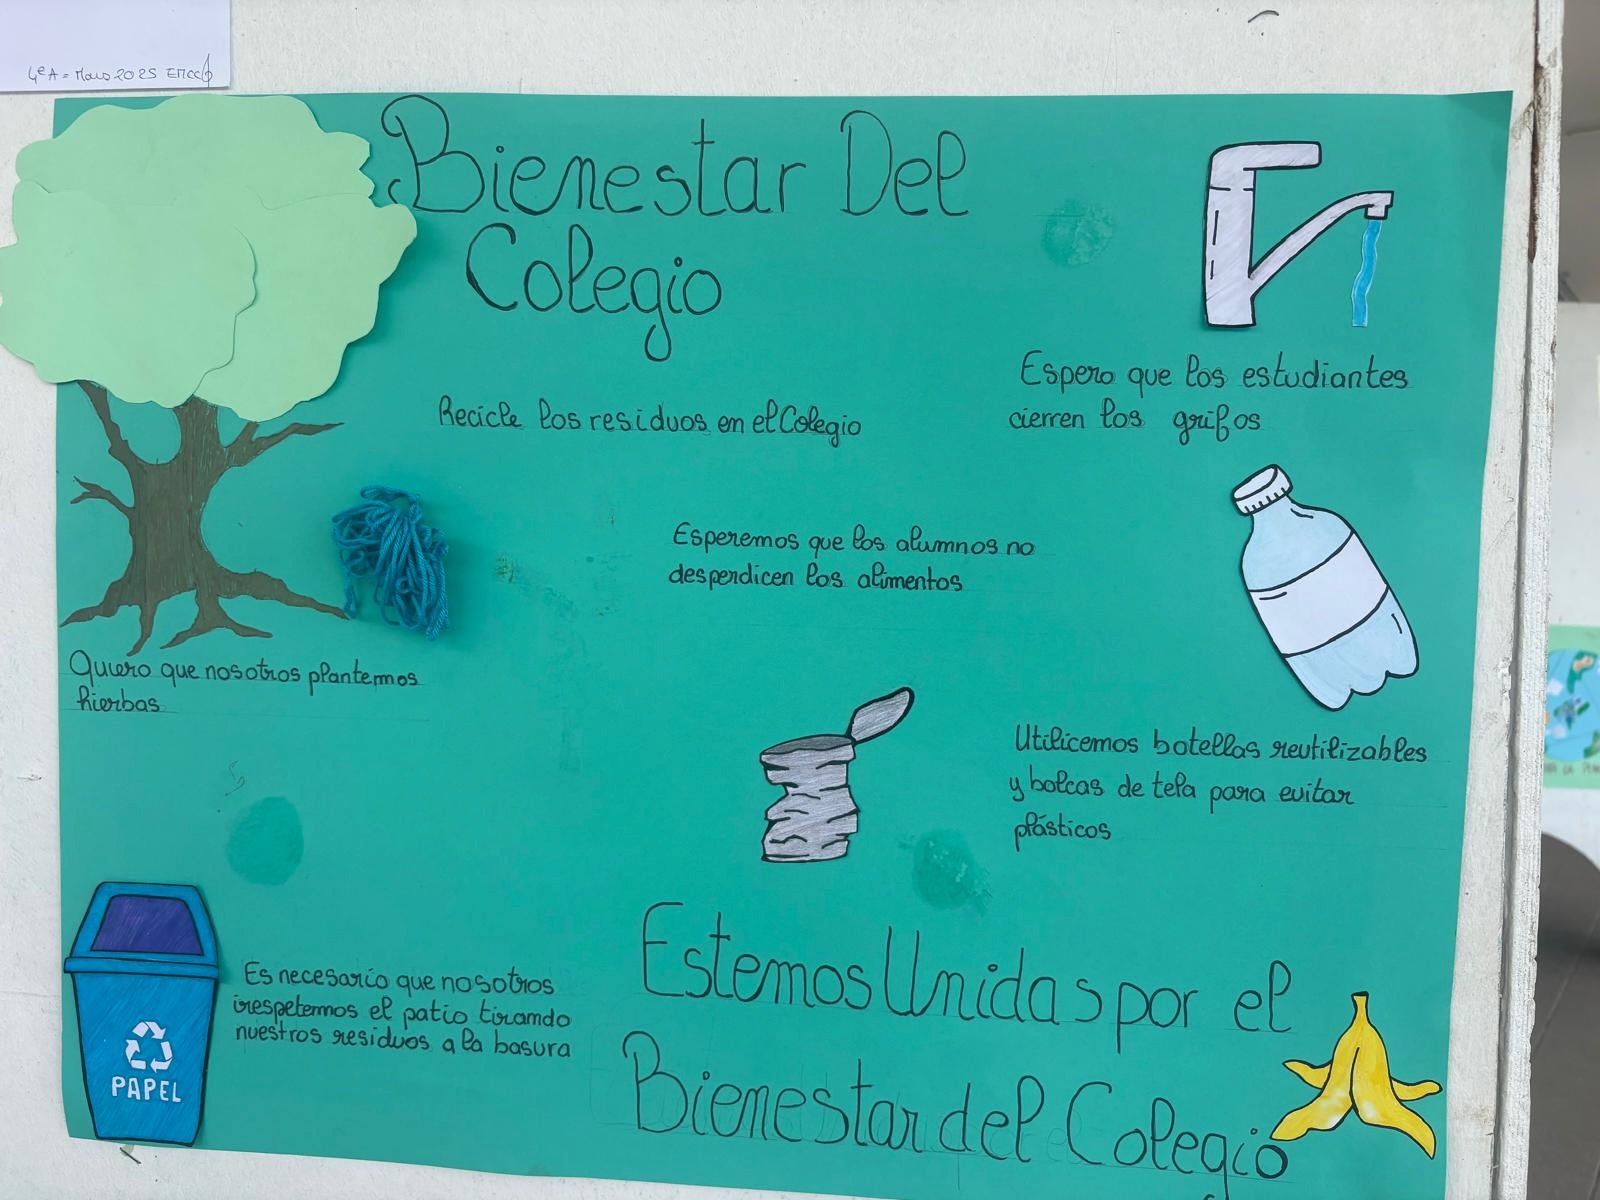 4ºA = Maio 2025
Bienestar Del
Colegio
Recicle los residuos en el Colegio
Espero que los estudiantes
cierren los grifos
Esperemos que los alumnos no
desperdicen los alimentos
Quiero que nosotros plantemos
hierbas
Utilicemos botellas reutilizables
y bolcas de tela para evitar
plásticos
Es necesario que nosotros
respetemos el patio tirando
nuestros residuos a la basura
PAPEL
Estemos Unidas por el
Bienestar del Colegio